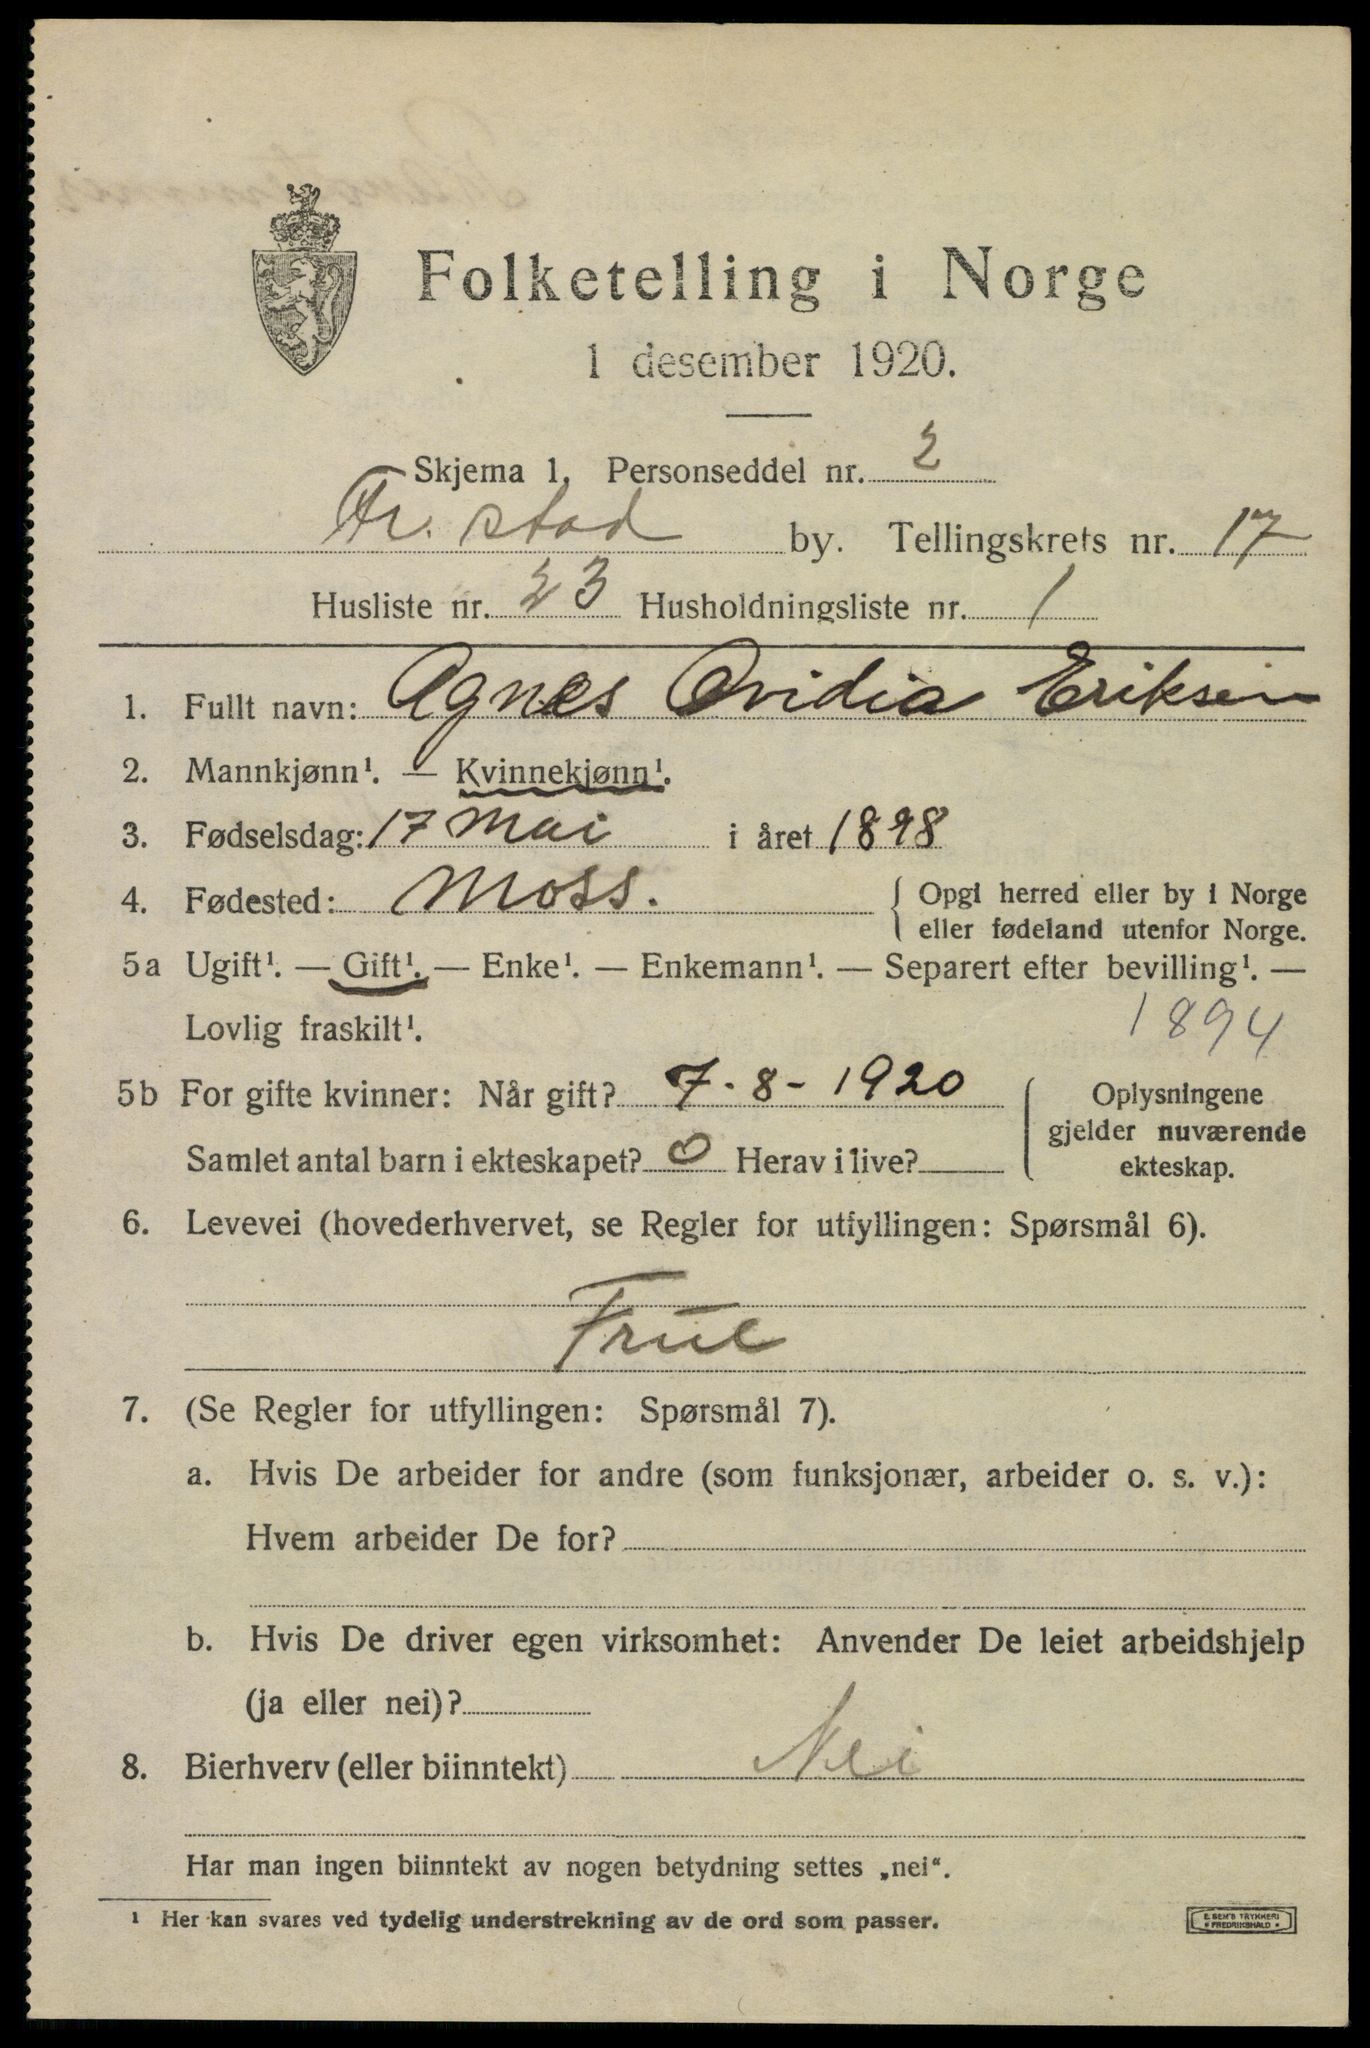 Folketelling i Norge
1 desember 1920.
Skjema 1. Personseddel nr. 2
Fr. stad by. Tellingskrets nr. 17
Husliste nr. 23 Husholdningsliste nr. 1
1. Fullt navn: Agnes Ovidia Eriksen
2. Mannkjønn¹. — Kvinnekjønn¹.
3. Fødselsdag: 17 Mai i året 1898
4. Fødested: Moss. { Opgi herred eller by i Norge
eller fødeland utenfor Norge.
5a Ugift¹. — Gift¹. — Enke¹. — Enkemann¹. — Separert efter bevilling¹. —
Lovlig fraskilt¹. 1894
5b For gifte kvinner: Når gift? 7-8-1920 { Oplysningene
gjelder nuværende
Samlet antal barn i ekteskapet? 0 Herav i live?
ekteskap.
6. Levevei (hovederhvervet, se Regler for utfyllingen: Spørsmål 6).
Frue
7. (Se Regler for utfyllingen: Spørsmål 7).
a. Hvis De arbeider for andre (som funksjonær, arbeider o. s. v.):
Hvem arbeider De for?
b. Hvis De driver egen virksomhet: Anvender De leiet arbeidshjelp
(ja eller nei)?
8. Bierhverv (eller biinntekt) Nei
Har man ingen biinntekt av nogen betydning settes „nei“.
¹ Her kan svares ved tydelig understrekning av de ord som passer.
E. SEM'S TRYKKERI
FREDRIKSHALD